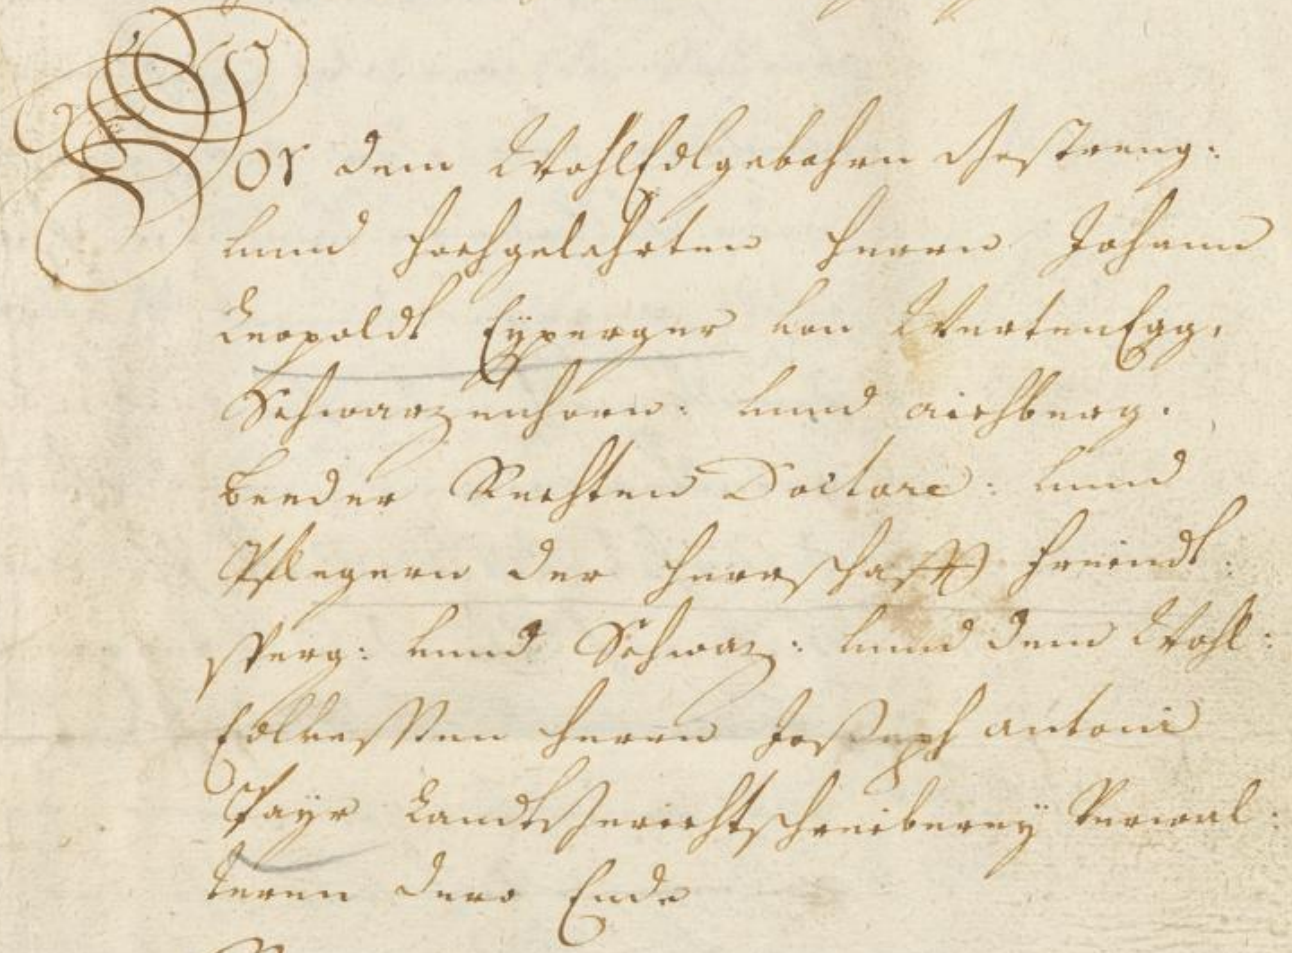 Vor dem WohlEdlgebohrn Gestreng:
vnnd Hochgelehrten Herrn Johann
Leopoldt Eyperger von WertenEgg,
Schwarzenhorn: vnnd Aichberg.
beeder Rechten Doctore: vnnd
Pflegern der Herrschafft Freündt:
sperg: vnnd Schwaz: vnnd dem Wohl:
Edlvessten Herrn Joseph Antoni
Payr Landtsgerichtschreiberey Verwal:
teren dero Ende